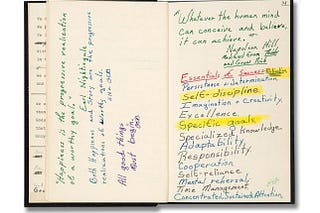 "Happiness is the progressive realization
of a worthy goal."
Earl Nightingale
Both Happiness and Story are the progressive
realizations of worthy goals.
All good things
Must begin.
"Whatever the human mind
can conceive and believe,
it can achieve."
Napoleon Hill
Think and Grow Rich
Essentials of Success
Persistence & determination
Self-discipline
Imagination & Creativity
Excellence
Specific goals
Specialized Knowledge
Adaptability
Responsibility
Cooperation
Self-reliance
Mental rehearsal
Time Management
Concentrated, Sustained Attention